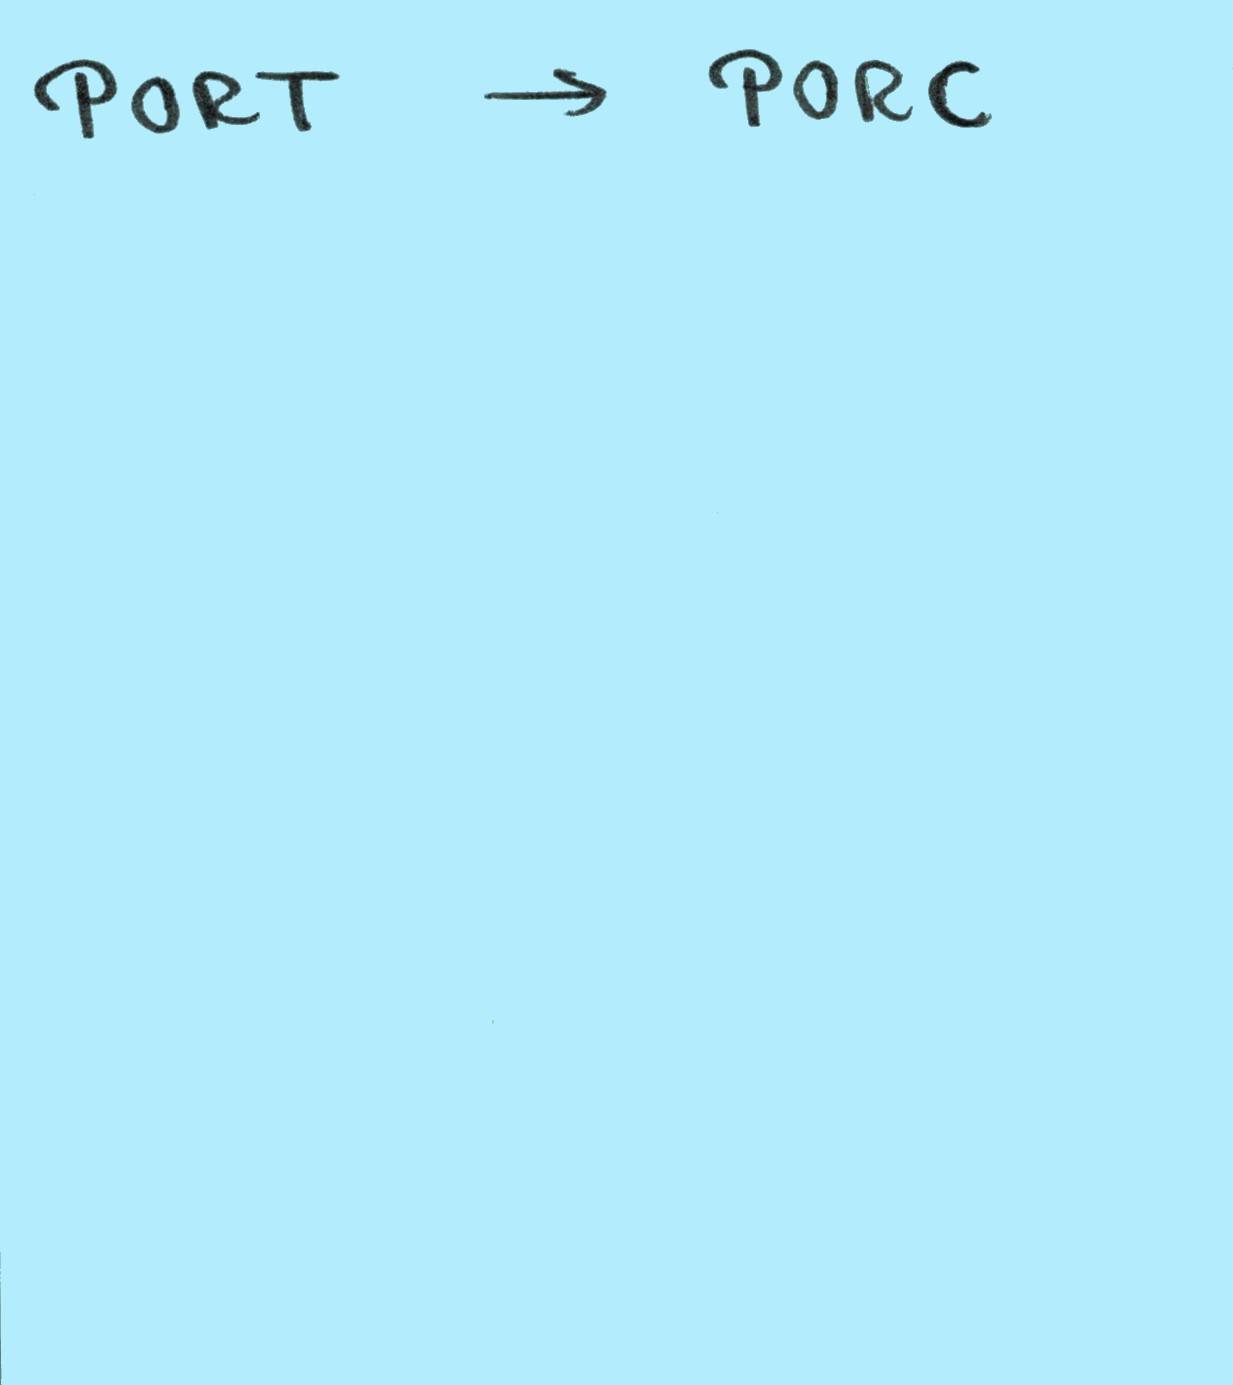 PORT → PORC